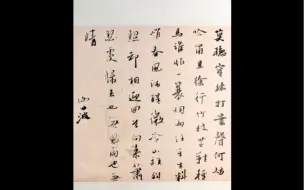 莫聽穿林打葉聲何妨
吟嘯且徐行竹杖芒鞋輕勝
馬誰怕一蓑烟雨任平生料
峭春風吹酒醒微冷山頭斜
照卻相迎回首向來蕭
瑟處歸去也無風雨也無
晴